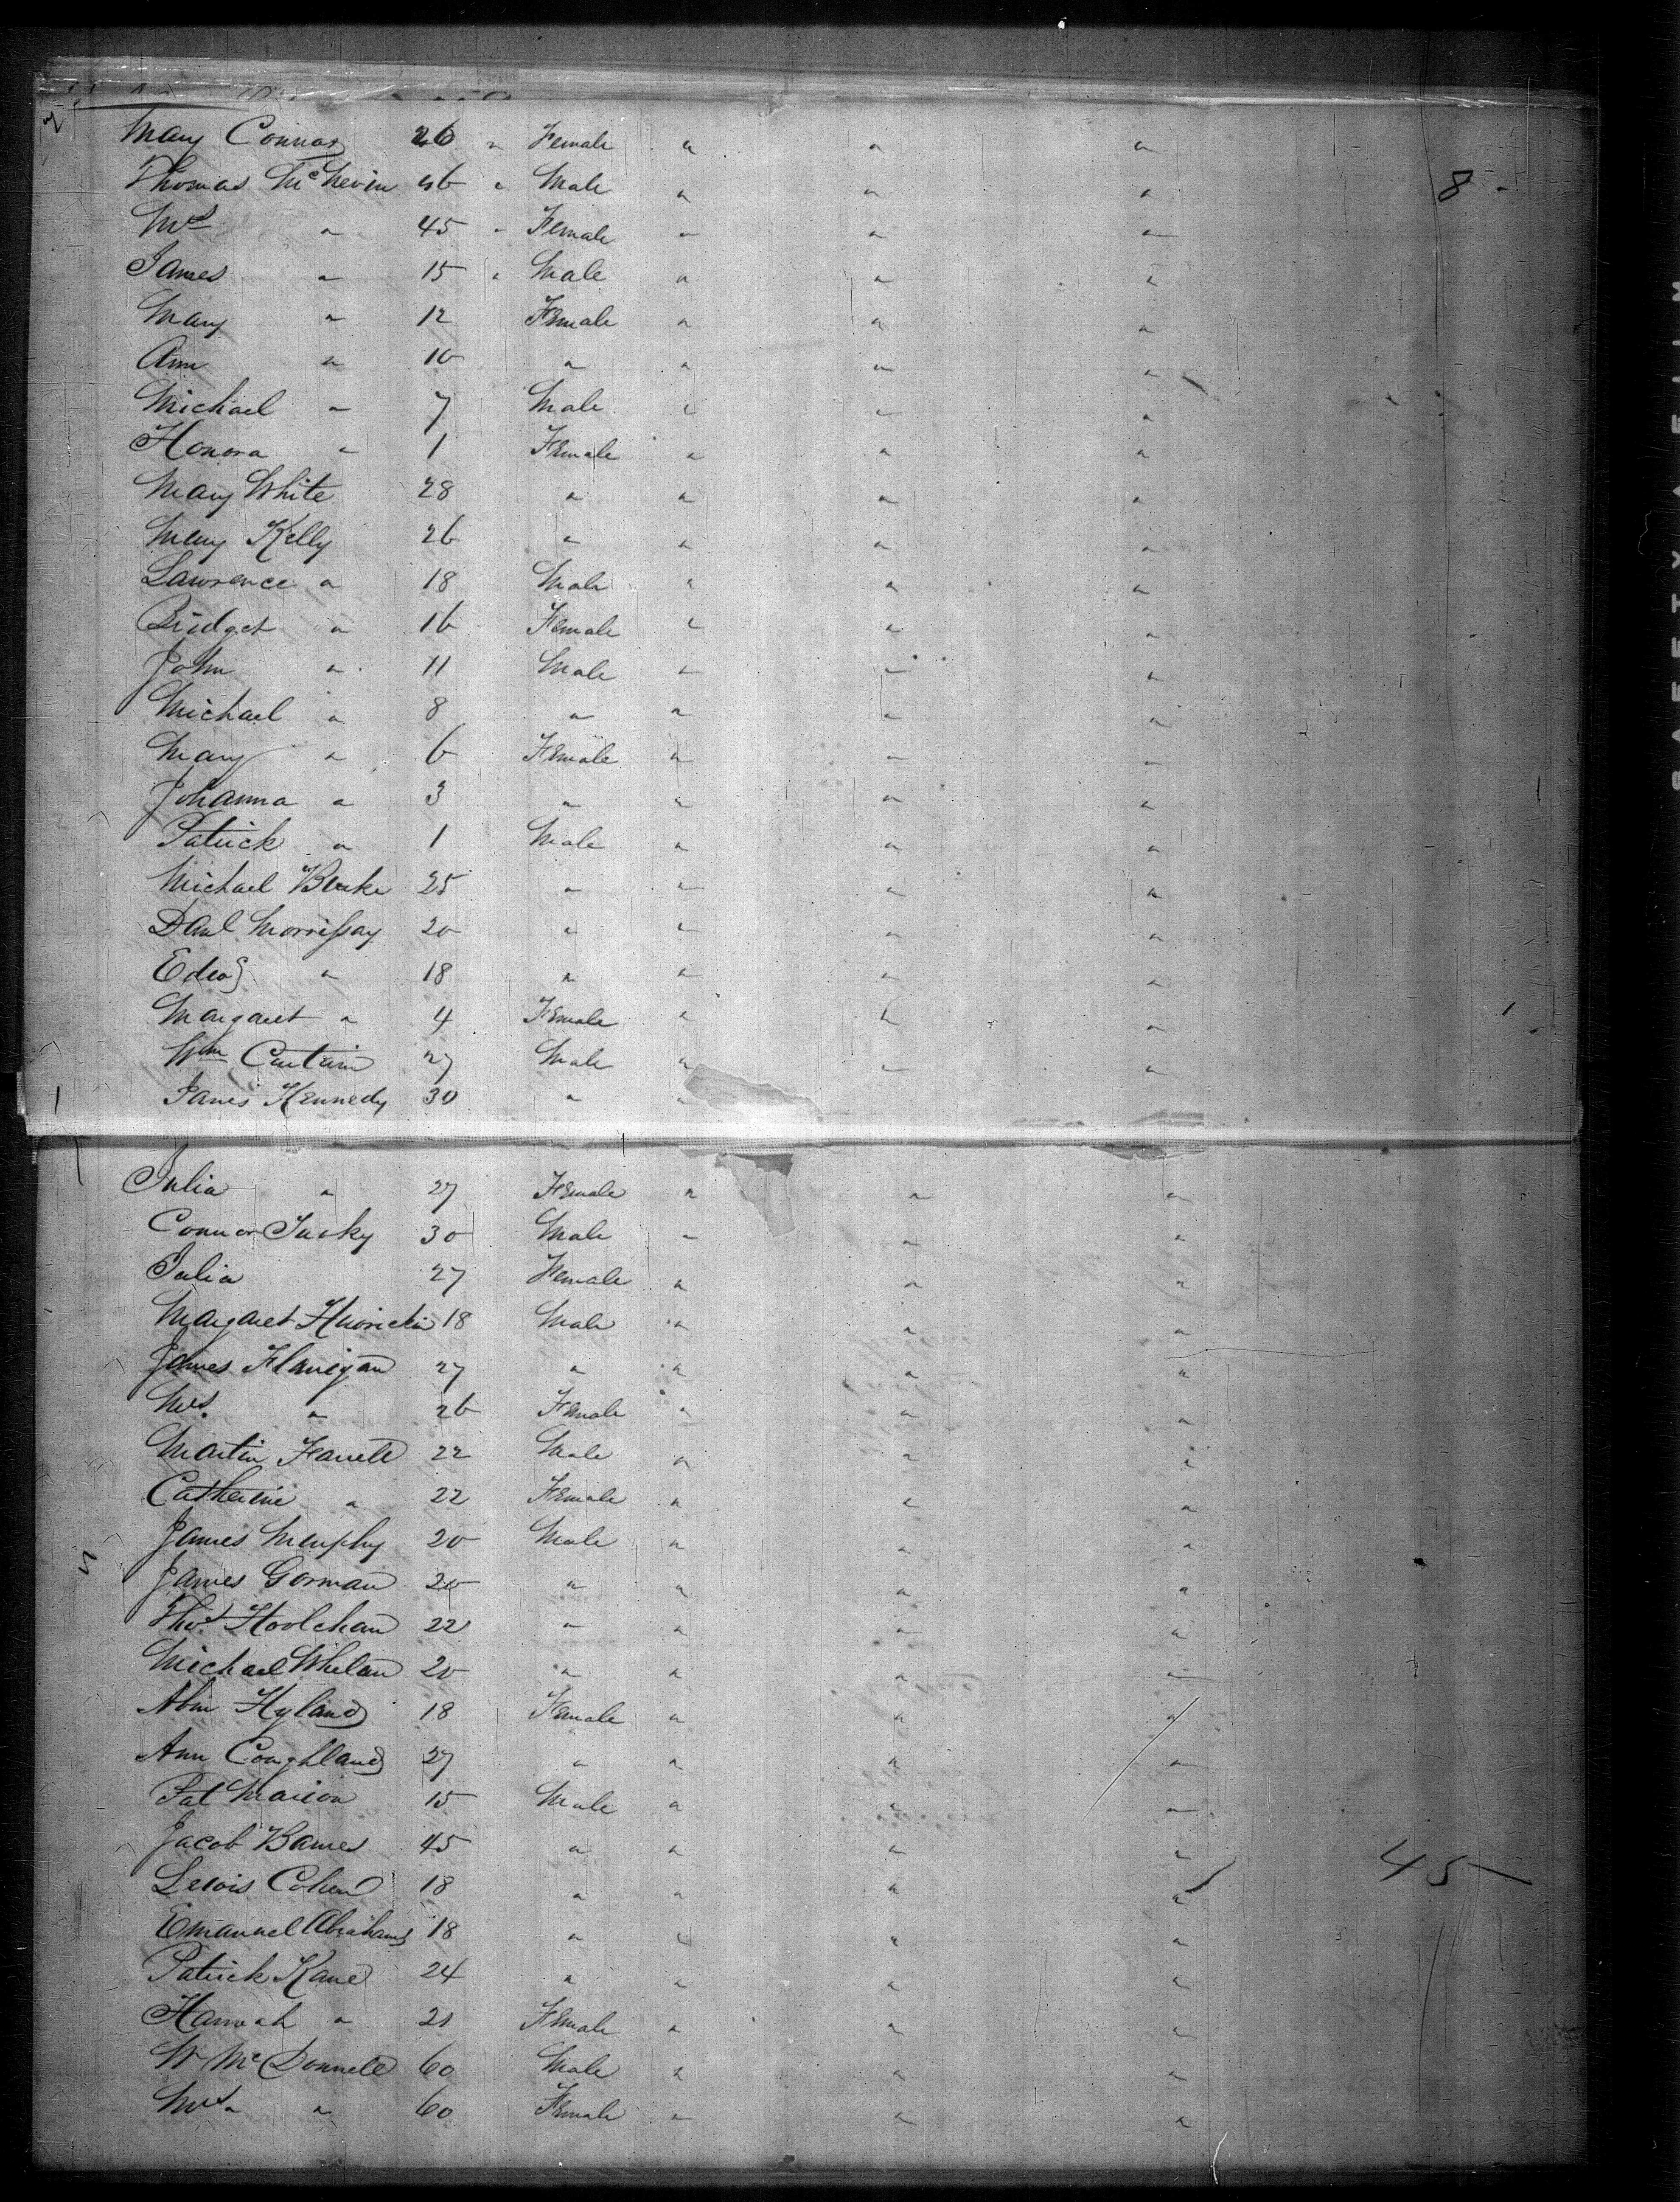 Mary Connor 26 " Female " " "
Thomas McNevin 46 " Male " " " 8
Mrs " 45 " Female " " "
James " 15 " Male " " "
Mary " 12 Female " " "
Ann " 10 " " " "
Michael " 7 Male " " "
Honora " 1 Female " " "
Mary White 28 " " " "
Mary Kelly 26 " " " "
Lawrence " 18 Male " " "
Bridget " 16 Female " " "
John " 11 Male " " "
Michael " 8 " " " "
Mary " 6 Female " " "
Johanna " 3 " " " "
Patrick " 1 Male " " "
Michael Burke 25 " " " "
Danl Morrissay 20 " " " "
Edwd " 18 " " " "
Margaret " 4 Female " " "
Wm Curtain 27 Male " " "
James Kennedy 30 " "
Julia " 27 Female " " "
Connor 30 Male " " "
Julia 27 Female " " "
Margaret 18 Male " " "
James Flanigan 27 " " " "
Mrs. " 26 Female " " "
Martin Farrell 22 Male " " "
Catherine " 22 Female " " "
James Murphy 20 Male " " "
James Gorman 20 " " " "
Thos Hoolehan 22 " " " "
Michael Whelan 20 " " " "
Hyland 18 Female " " "
Ann Coughland 27 " " " "
Pat Marion 15 Male " " "
Jacob Barnes 45 " " " "
Lewis Cohen 18 " " " " 45
Emanuel Abrahams 18 " " " "
Patrick Kane 24 " " " "
Hannah " 21 Female " " "
W McDonnell 60 Male " " "
Mrs " " 60 Female " " "